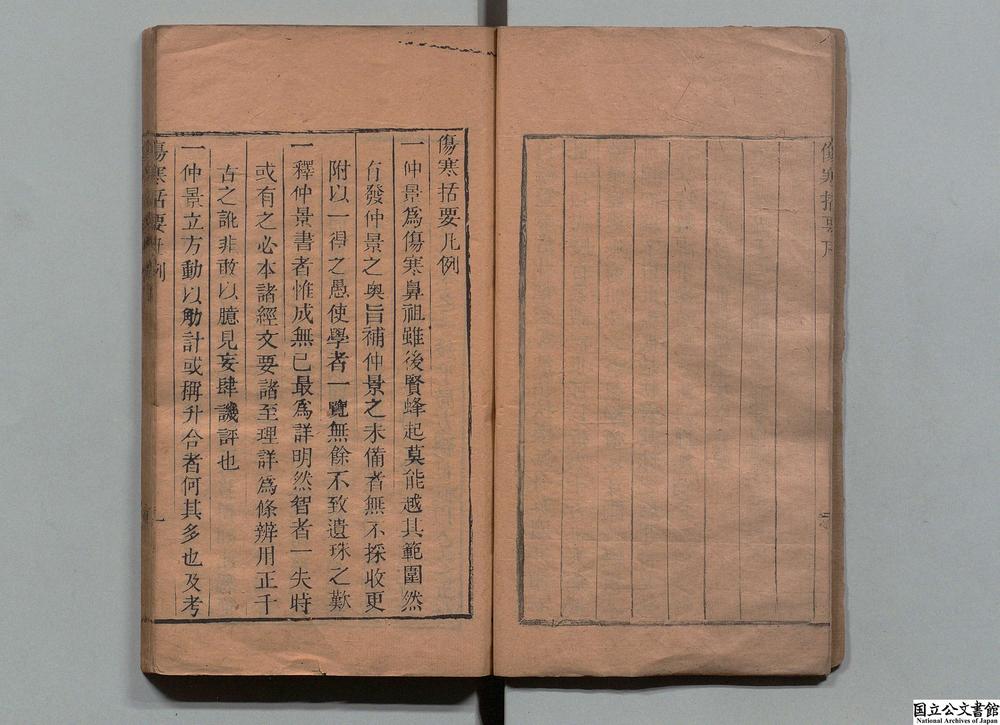 傷寒括要凡
傷寒括要凡例
一仲景為傷寒鼻祖雖後賢蜂起莫能越其範圍然
有發仲景之奥旨補仲景之未備者無不採收更
附以一得之愚使學者一覽無餘不致遺珠之歎
一釋仲景書者惟成無已最為詳明然智者一失時
或有之必本諸經文要諸至理詳為條辨用正千
古之訛非敢以臆見妄肆譏評也
一仲景立方動以觔計或稱升合者何其多也及考
傷寒括要 例
国立公文書館
National Archives of Japan